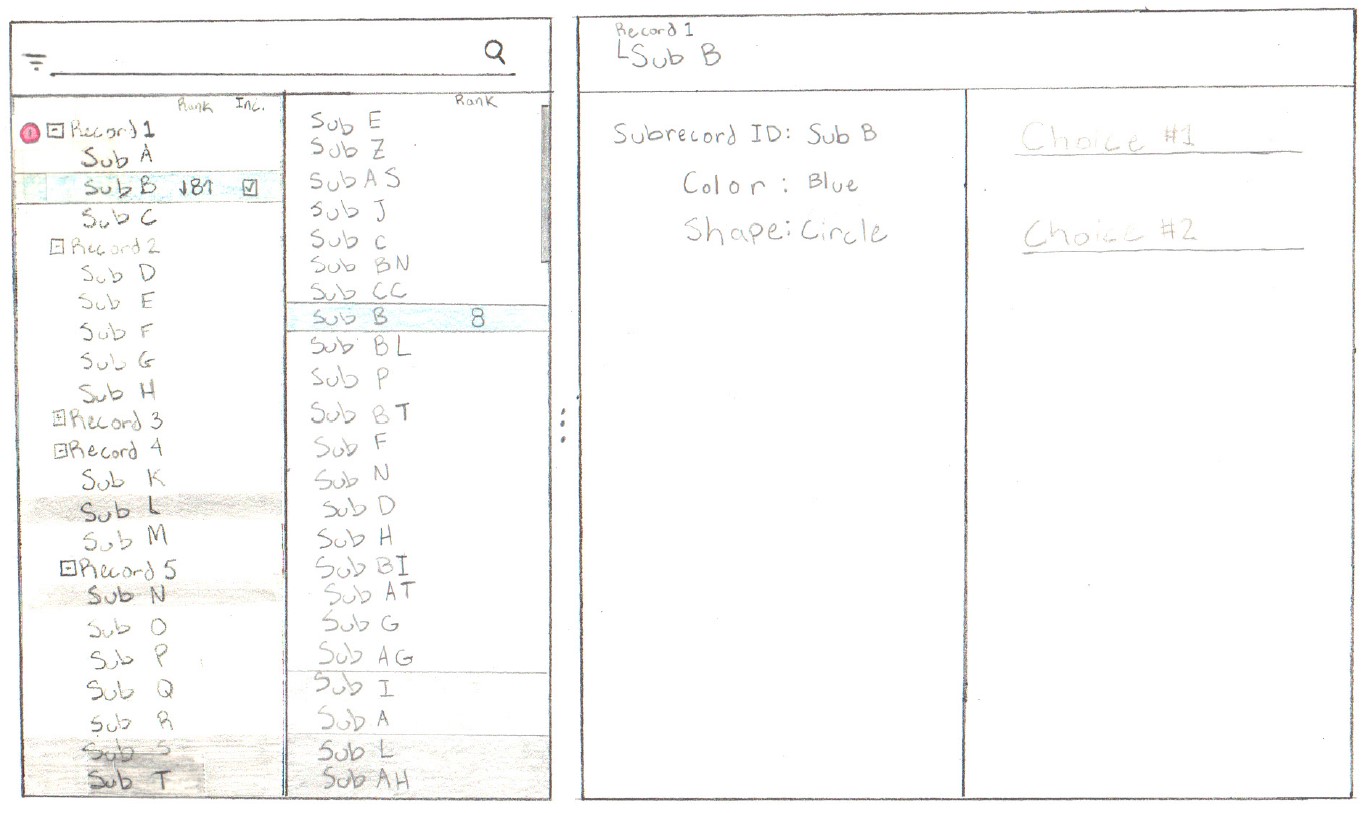 Rank Inc.
Record 1
Sub A
Sub B ↓8↑
Sub C
Record 2
Sub D
Sub E
Sub F
Sub G
Sub H
Record 3
Record 4
Sub K
Sub L
Sub M
Record 5
Sub N
Sub O
Sub P
Sub Q
Sub R
Sub S
Sub T
Rank
Sub E
Sub Z
Sub AS
Sub J
Sub C
Sub BN
Sub CC
Sub B 8
Sub BL
Sub P
Sub BT
Sub F
Sub N
Sub D
Sub H
Sub BI
Sub AT
Sub G
Sub AG
Sub I
Sub A
Sub L
Sub AH
Record 1
Sub B
Subrecord ID: Sub B
Color: Blue
Shape: Circle
Choice #1
Choice #2